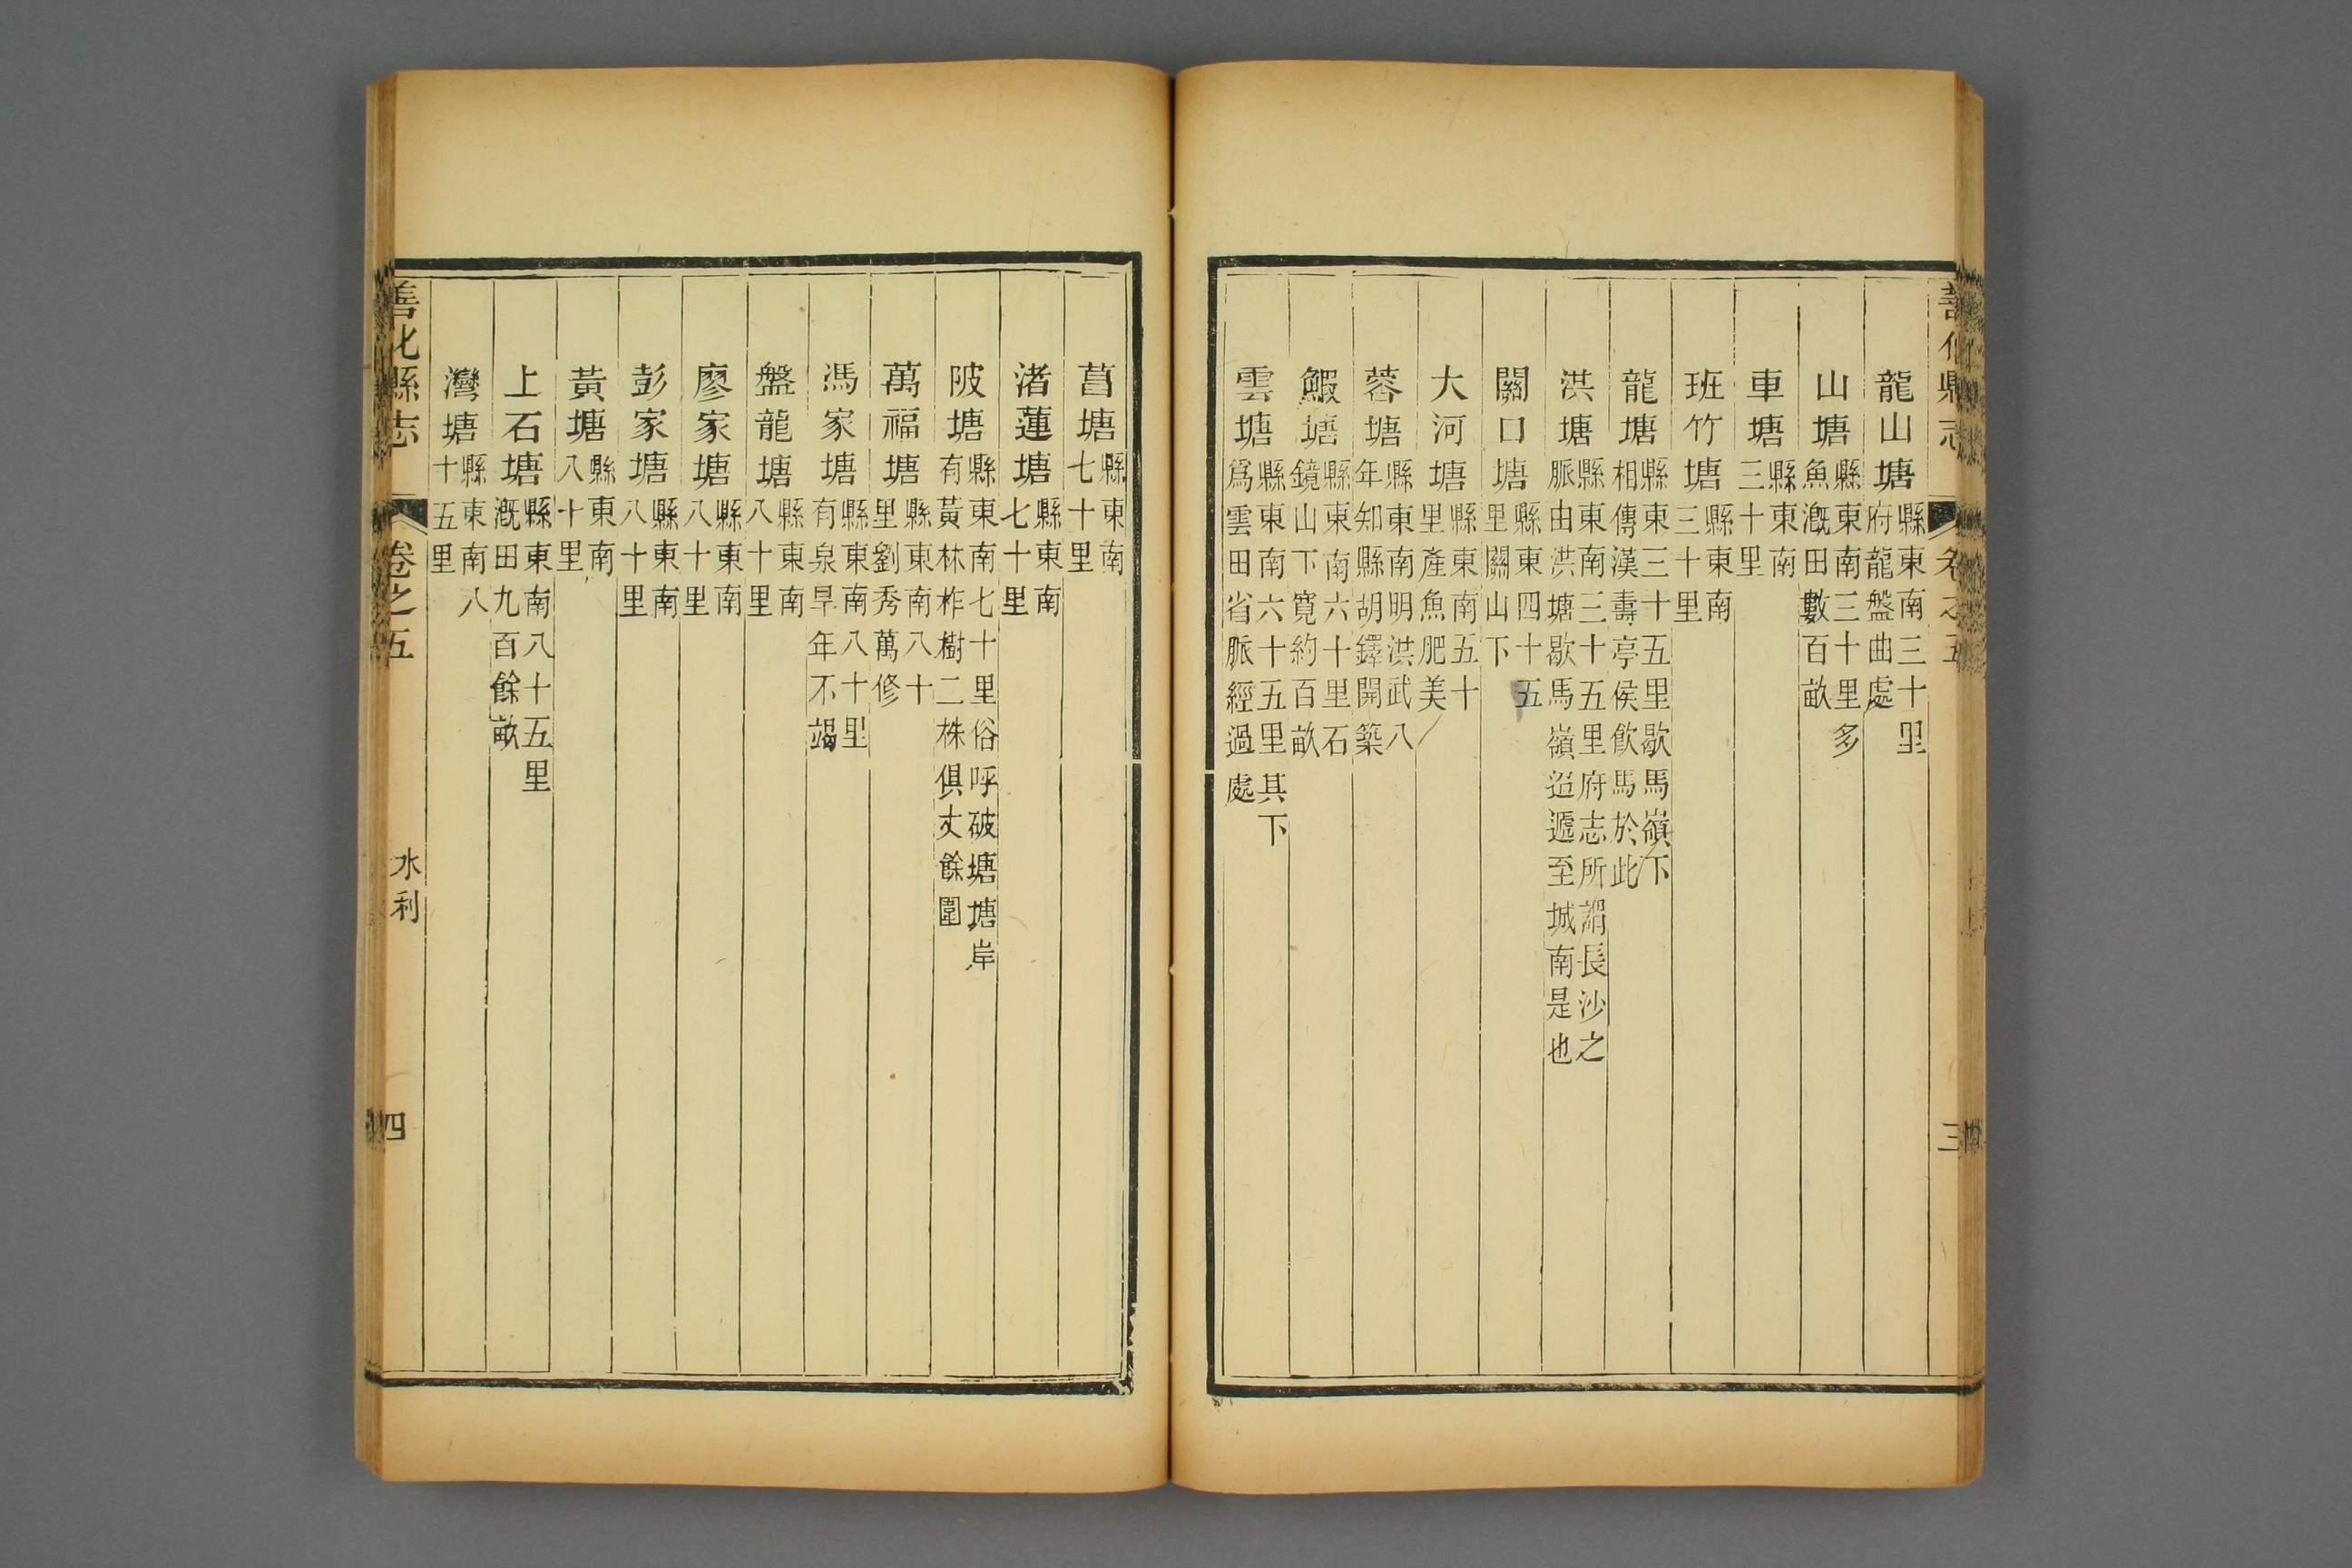 善化縣志 卷之五 三
龍山塘縣東南三十里府龍盤曲處
山塘縣東南三十里多魚溉田數百畝
車塘縣東南三十里
班竹塘縣東南三十里
龍塘縣東三十五里歇馬嶺下相傳漢壽亭侯飲馬於此
洪塘縣東南三十五里府志所謂長沙之脈由洪塘歇馬嶺迢遞至城南是也
關口塘縣東四十五里關山下
大河塘縣東南五十里產魚肥美
蓉塘縣東南明洪武八年知縣胡鐸開築
鰕塘縣東南六十里石鏡山下寬約百畝
雲塘縣東南六十五里其下爲雲田省脈經過處
菖塘縣東南七十里
渚蓮塘縣東南七十里
陂塘縣東南七十里俗呼破塘塘岸有黃林柞樹二株俱丈餘圍
萬福塘縣東南八十里劉秀萬修
馮家塘縣東南八十里有泉旱年不竭
盤龍塘縣東南八十里
廖家塘縣東南八十里
彭家塘縣東南八十里
黃塘縣東南八十里
上石塘縣東南八十五里溉田九百餘畝
灣塘縣東南八十五里
善化縣志 卷之五 水利 四